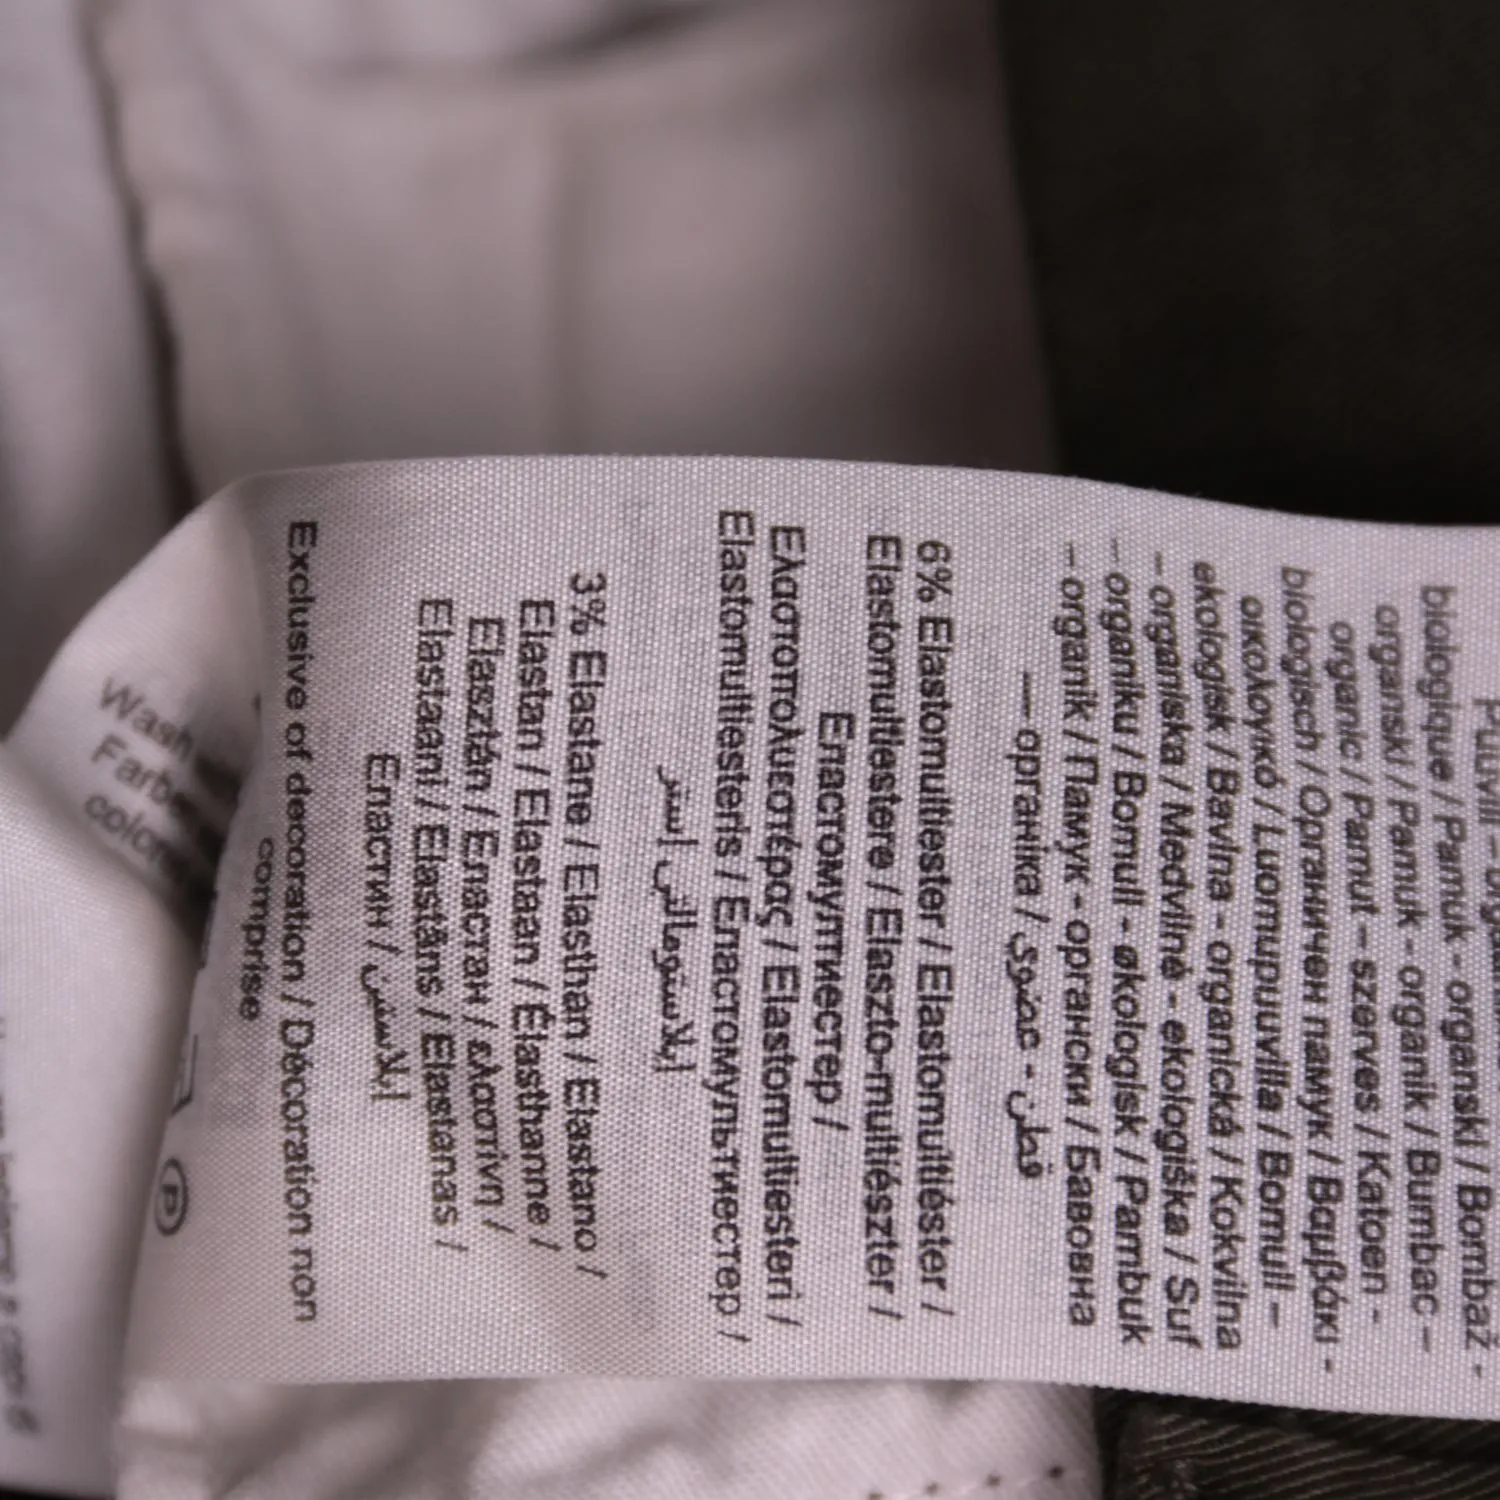 biologique / Pamuk - organski / Bombaž -
organski / Pamuk - organik / Bumbac –
organic / Pamut – szerves / Katoen -
biologisch / Органичен памук / Βαμβάκι -
οικολογικό / Luomupuuvilla / Bomull –
ekologisk / Bavlna - organická / Kokvilna
– organiska / Medvilnė - ekologiška / Suf
– organiku / Bomull - økologisk / Pambuk
– organik / Памук - органски / Бавовна
— органіка / قطن - عضوي
6% Elastomultiester / Elastomultiéster /
Elastomultiestere / Elaszto-multiészter /
Еластомултиестер /
Ελαστοπολυεστέρας / Elastomultiesteri /
Elastomultiesteris / Еластомультиестер /
إيلاستومالتي إستر
3% Elastane / Elasthan / Elastano /
Elastan / Elastaan / Élasthanne /
Elasztán / Еластан / ελαστίνη /
Elastaani / Elastāns / Elastanas /
Еластин / إيلاستين
Exclusive of decoration / Décoration non
comprise
Wash